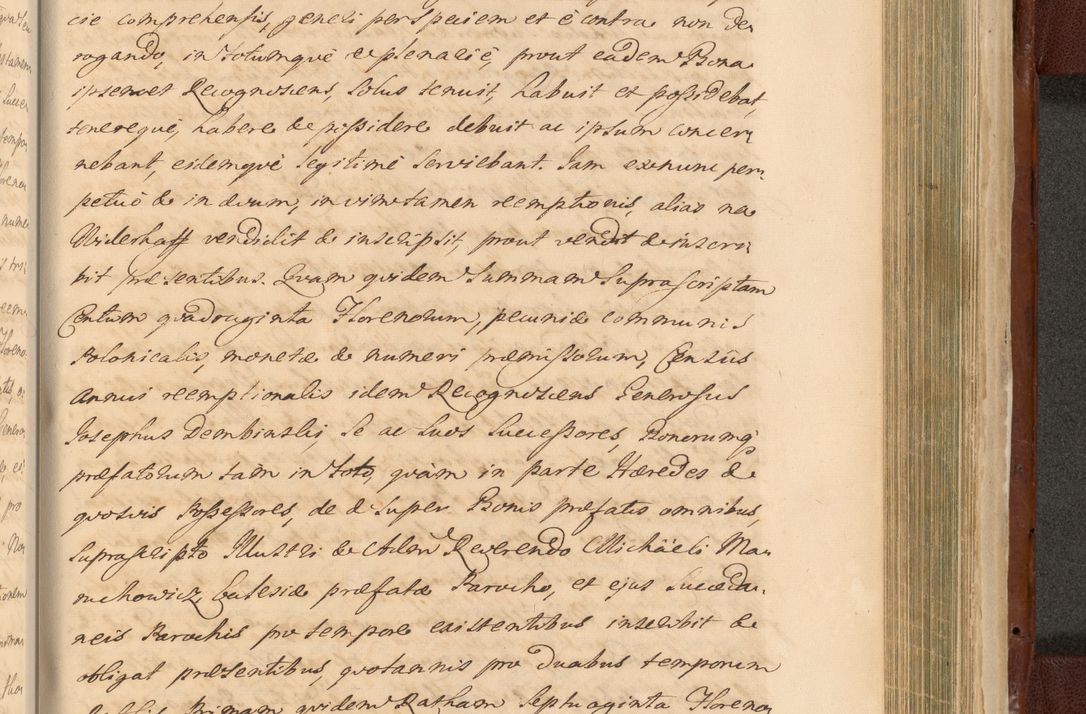 cie comprehensis, generi per speciem et è contra non de
rogando, in totumquè & plenariè, prout eadem Bona
ipsemet Recognoscens, solus tenuit, habuit et possidebat,
tenereque, habere & possidere debuit ac ipsum concer
nebant, eidemquè legitimè serviebant. Iam ex nunc per
petuò & in ævum, in vim tamen reemptionis, alias na
Widerkaff vendidit & inscripsit, prout vendit & inscri
bit præsentibus. Quam quidem Summam Suprascriptam
Centum quadraginta Florenorum, pecuniæ communis
Polonicalis, monetæ & numeri præmissorum, Censûs
annui reemptionalis idem Recognoscens Generosus
Iosephus Dembinski, se ac suos Successores, Bonorumq
præfatorum tam in toto, quàm in parte Hæredes &
quosvis Possessores, de & super Bonis præfatis omnibus,
suprascripto Illustri & Adm Reverendo Michäeli Ma
ruchowicz, Ecclesiæ præfatæ Parocho, et ejus succeda
neis Parochis pro tempore existentibus inscribit &
obligat præsentibus, quotannis pro duabus temporum
Primam quidem Ratham Septuaginta Floreno